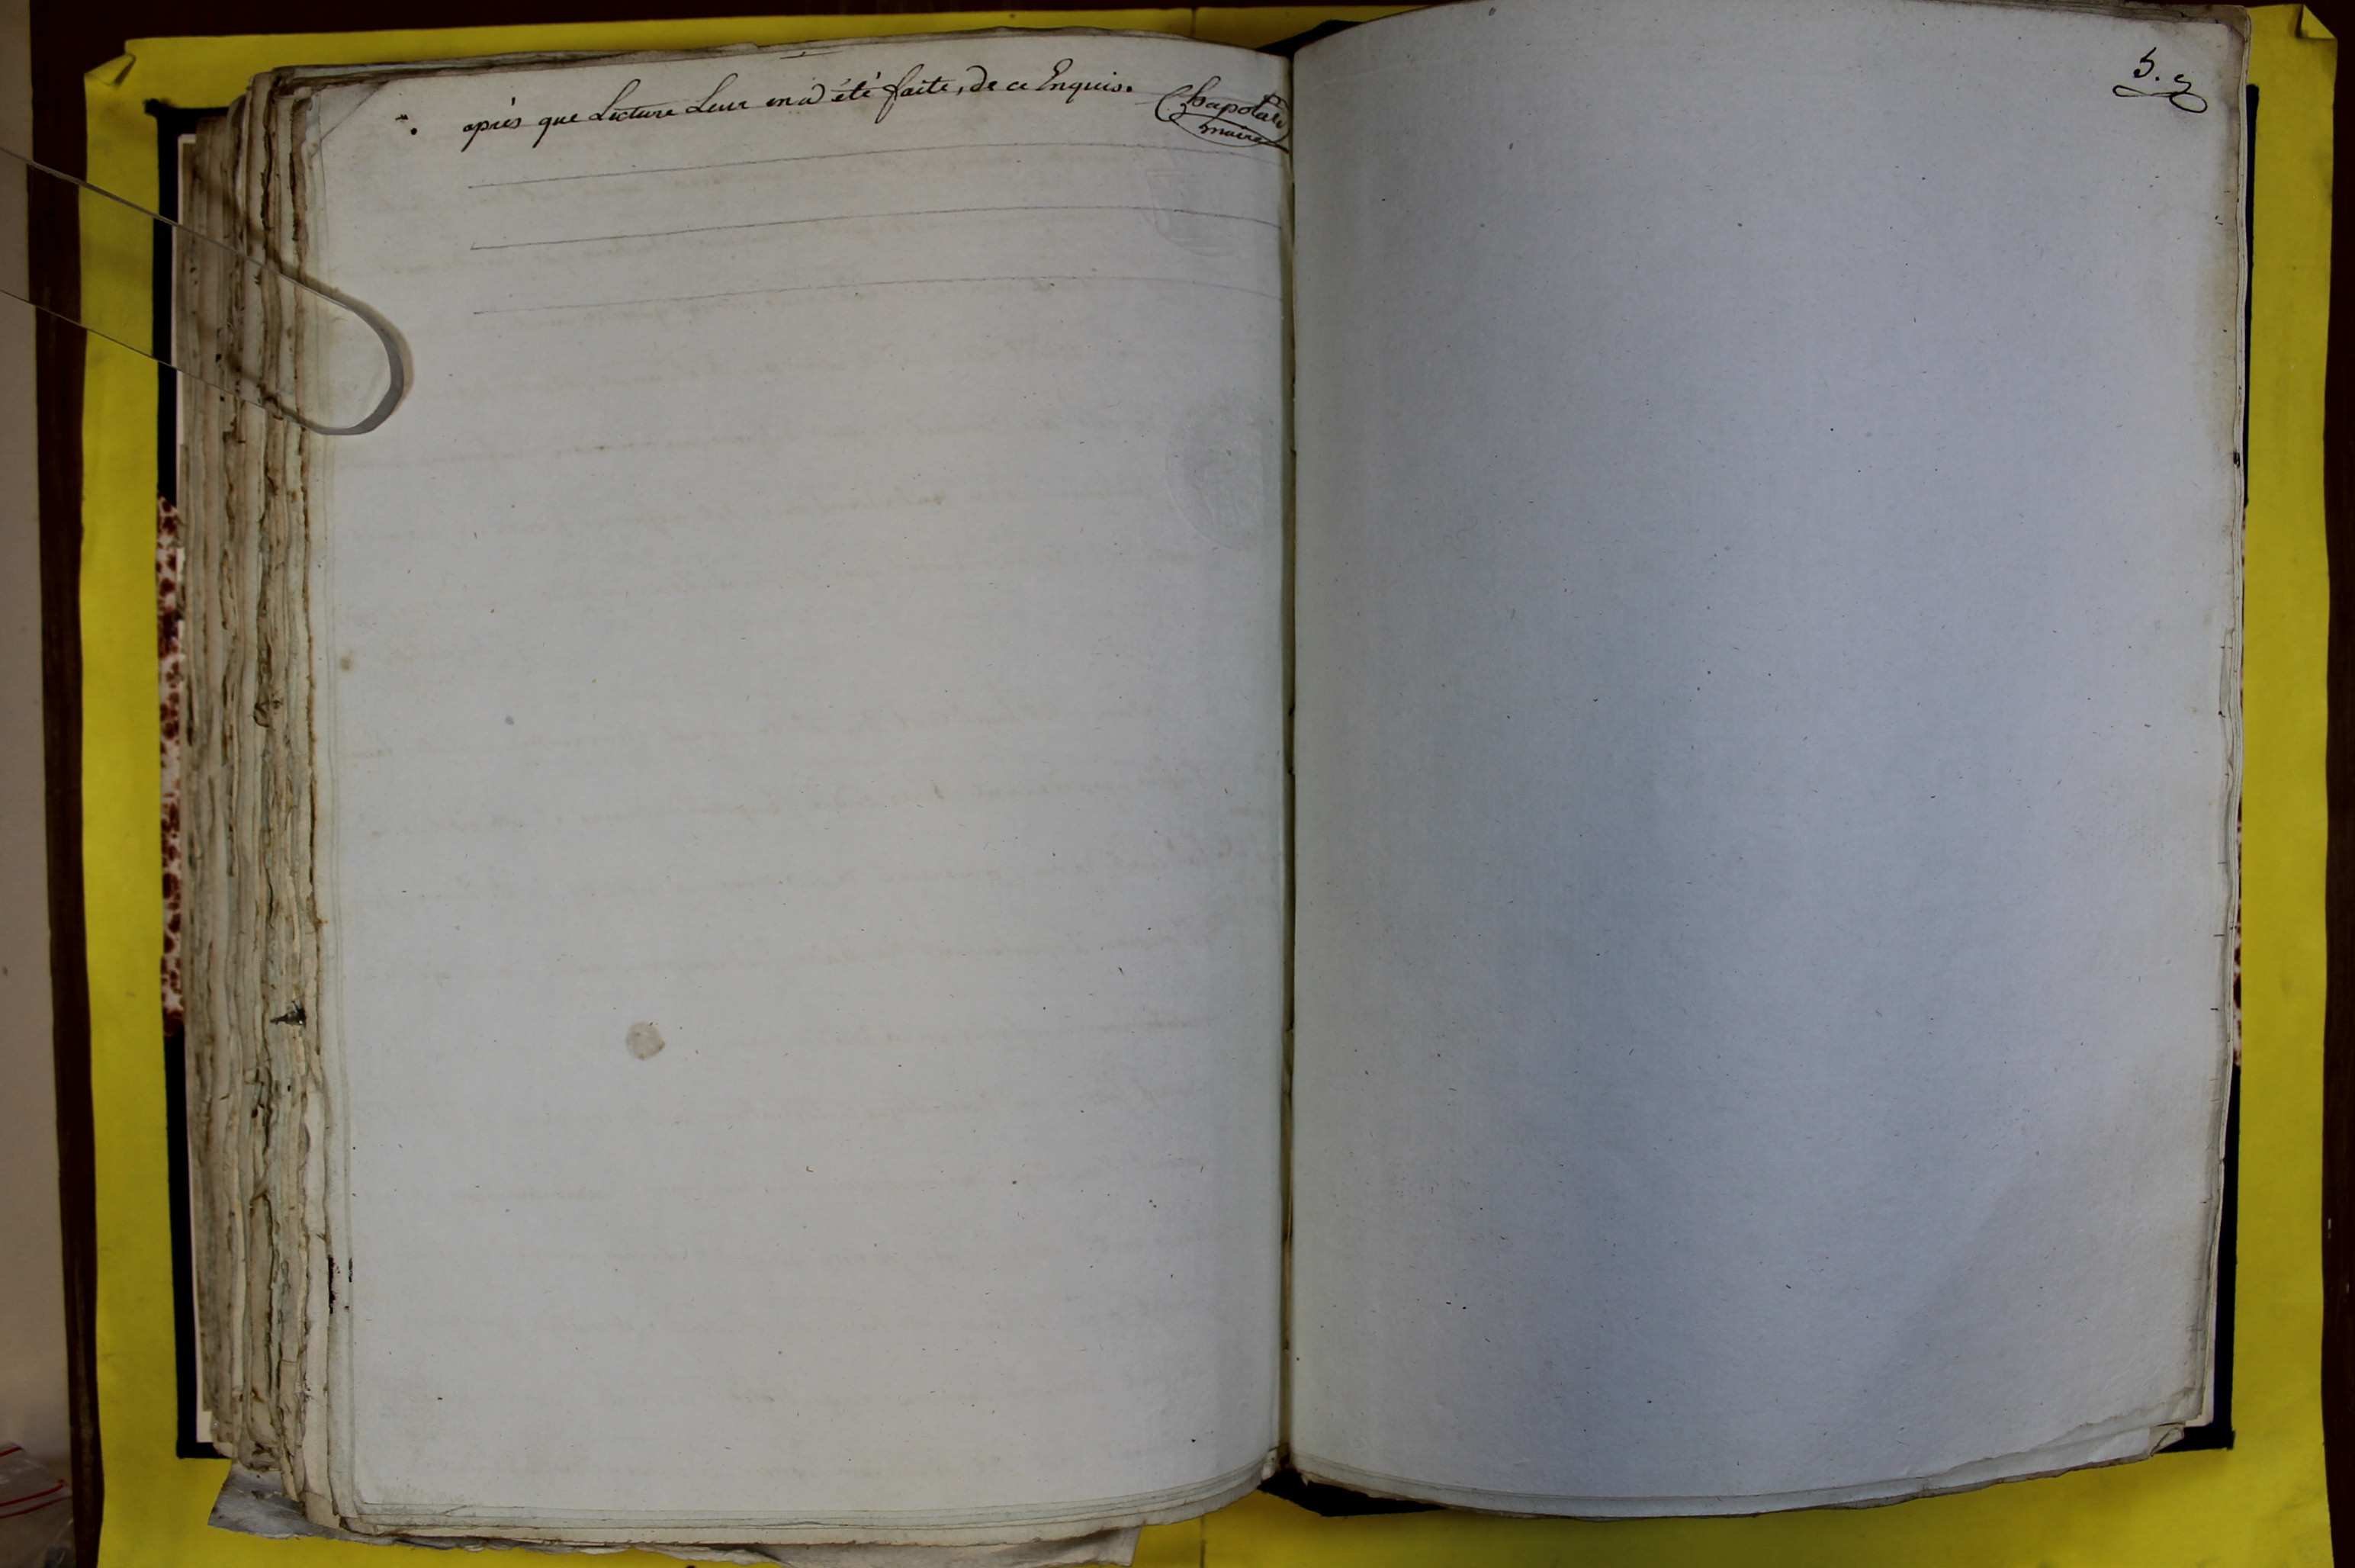 après que Lecture Leur en a été faite, de ce Enquis.
Chapotard
maire
5.